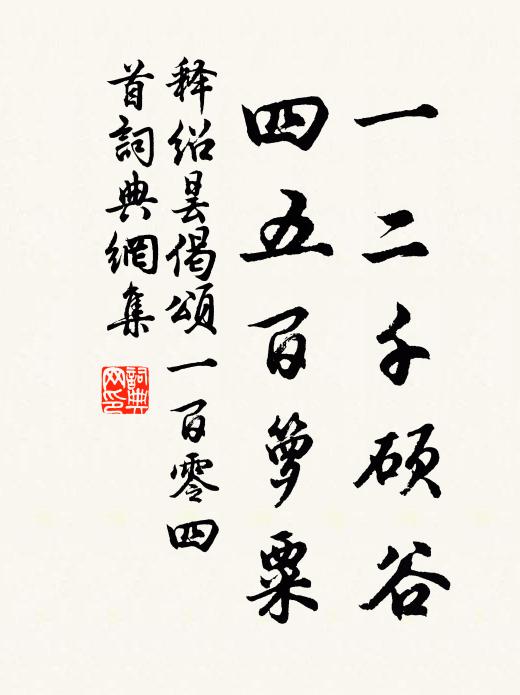 一二千硕谷
四五百箩粟
释绍昙偈頌一百零四
首詞典網集
詞典
网印